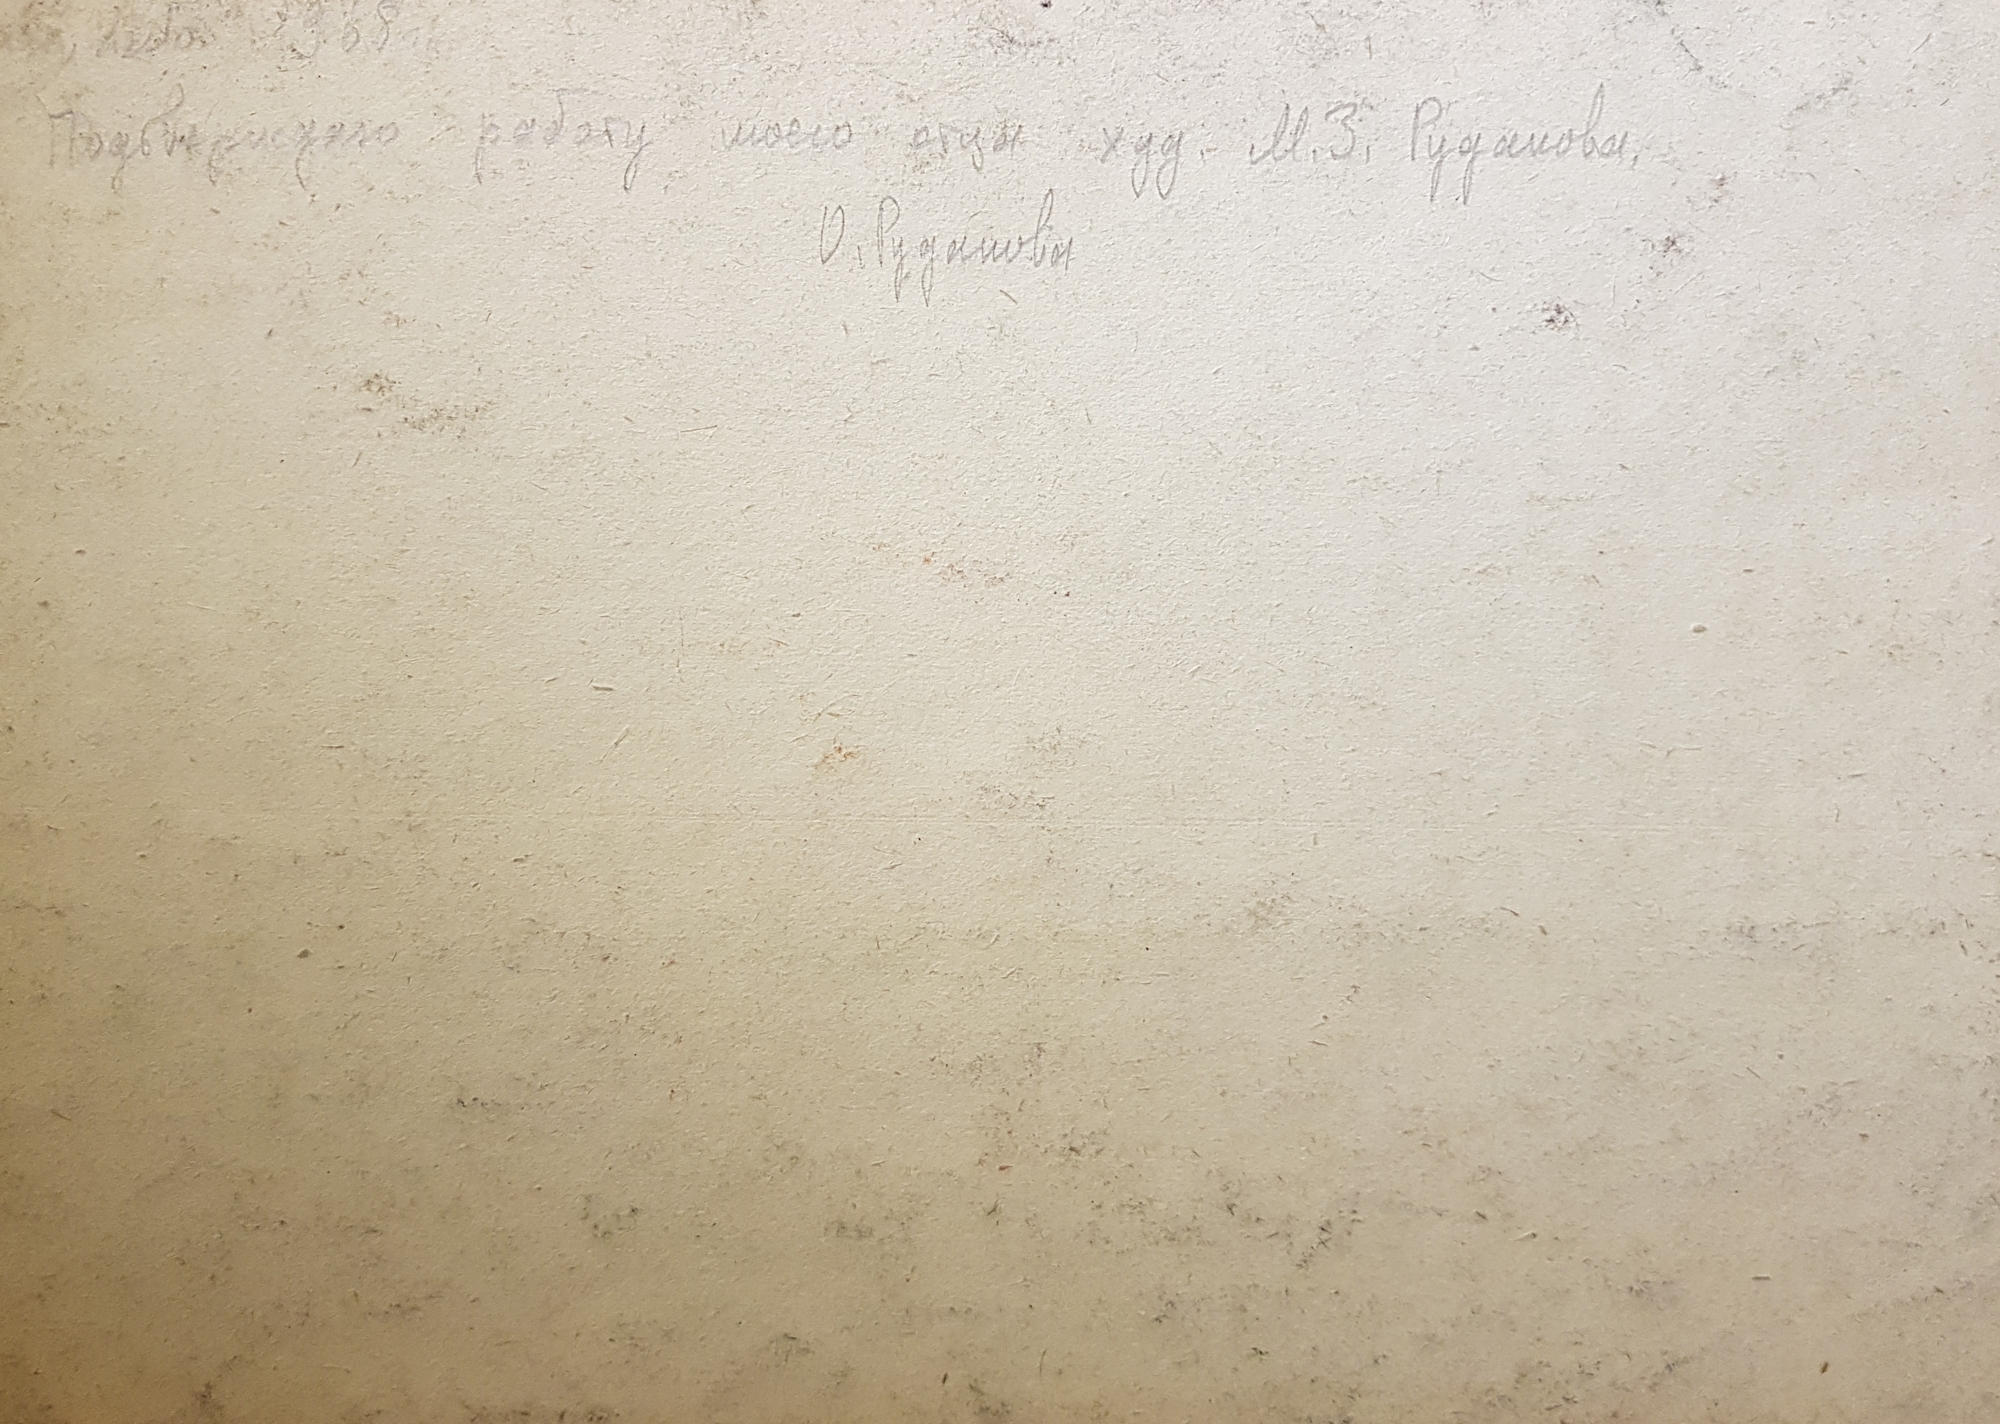 1968
Подтверждаю работу моего отца худ. М.З. Рудакова.
О. Рудакова